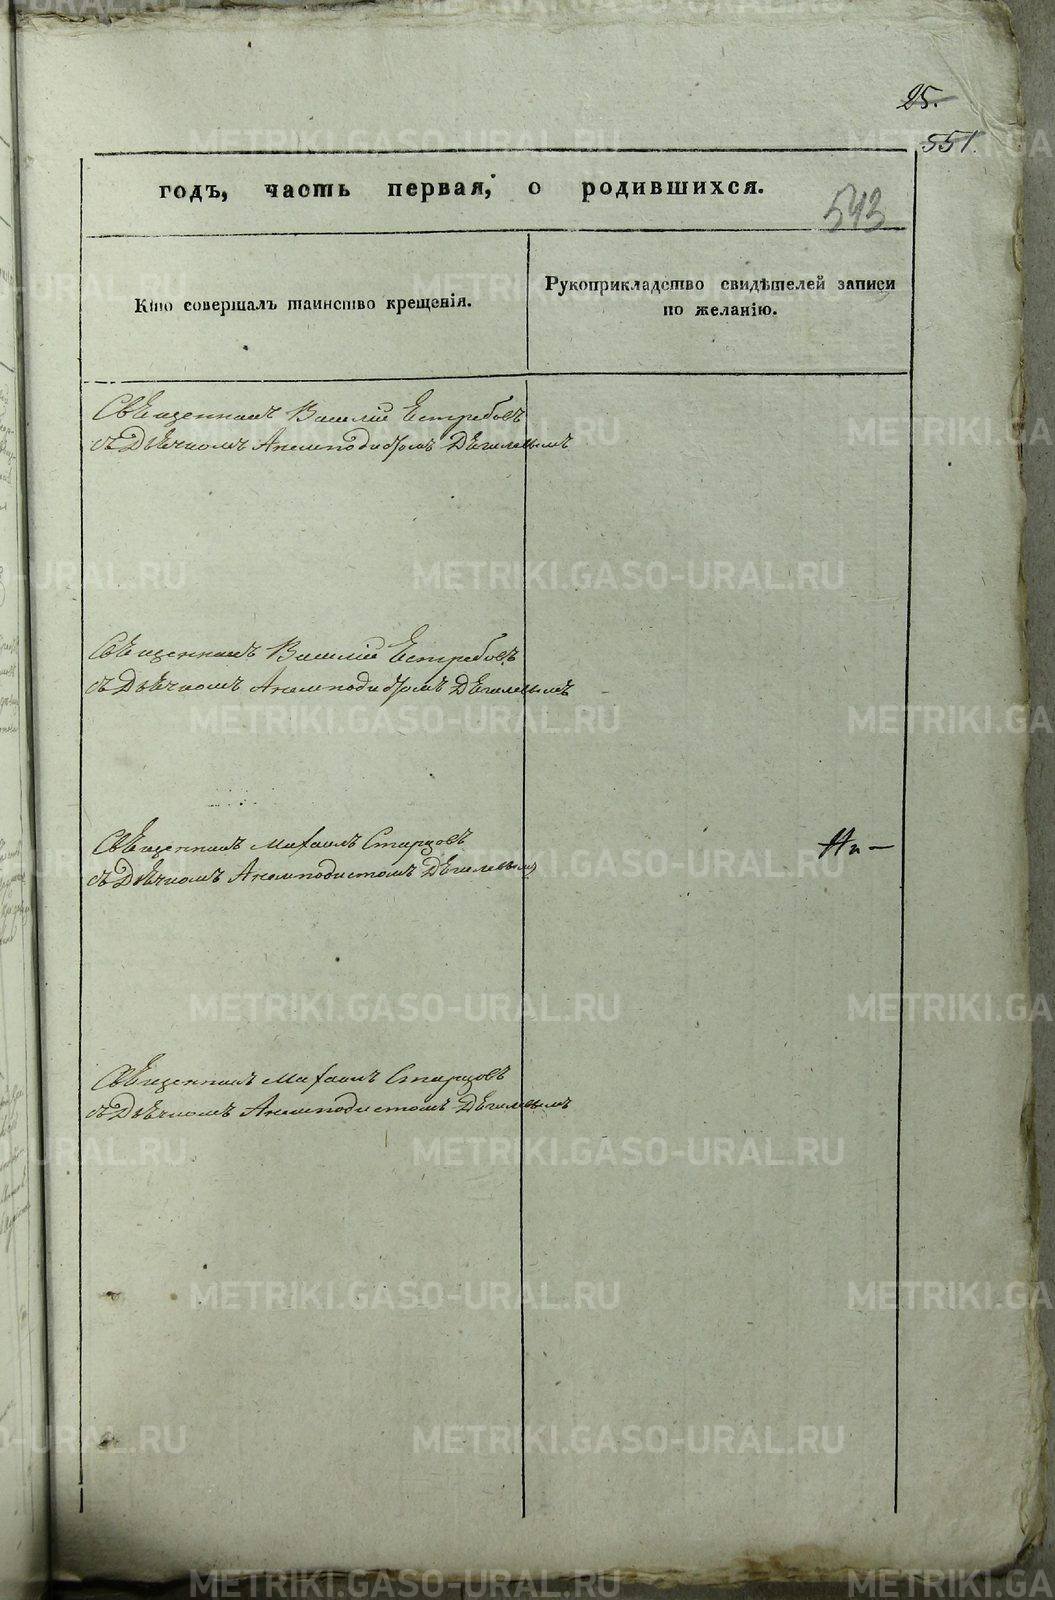 25.
551.
годъ, часть первая, о родившихся.
543
Кто совершалъ таинство крещенія.
Рукоприкладство свидѣтелей записи
по желанію.
Свѣщенникъ Василій Естребовъ
съ Дьячкомъ Анемподистомъ Дѣгилевымъ
Свѣщенникъ Василій Естребовъ
съ Дьячкомъ Анемподистомъ Дѣгилевымъ
Свѣщенникъ Михаилъ Старцовъ
съ Дьячкомъ Анемподистомъ Дѣгилевымъ
Свѣщенникъ Михаилъ Старцовъ
съ Дьячкомъ Анемподистомъ Дѣгилевымъ
METRIKI.GASO-URAL.RU